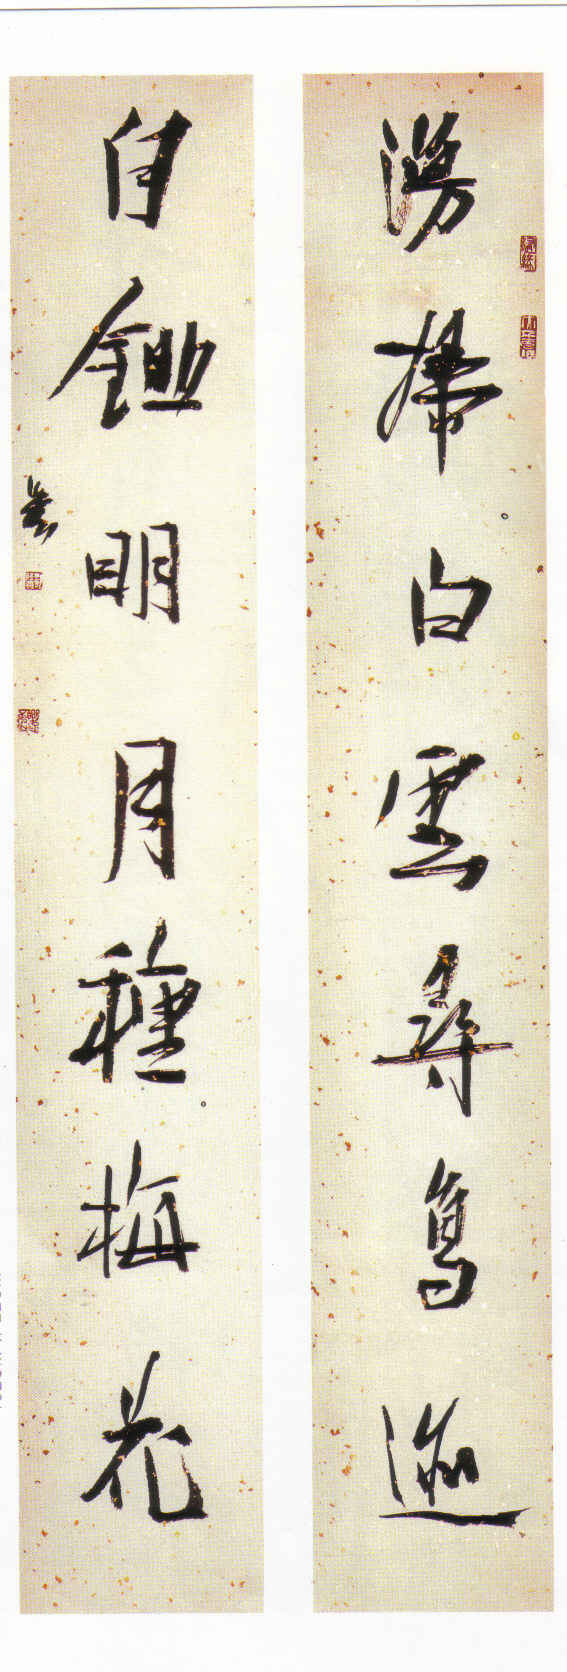 漫掃白雲尋鳥迹
自鋤明月種梅花